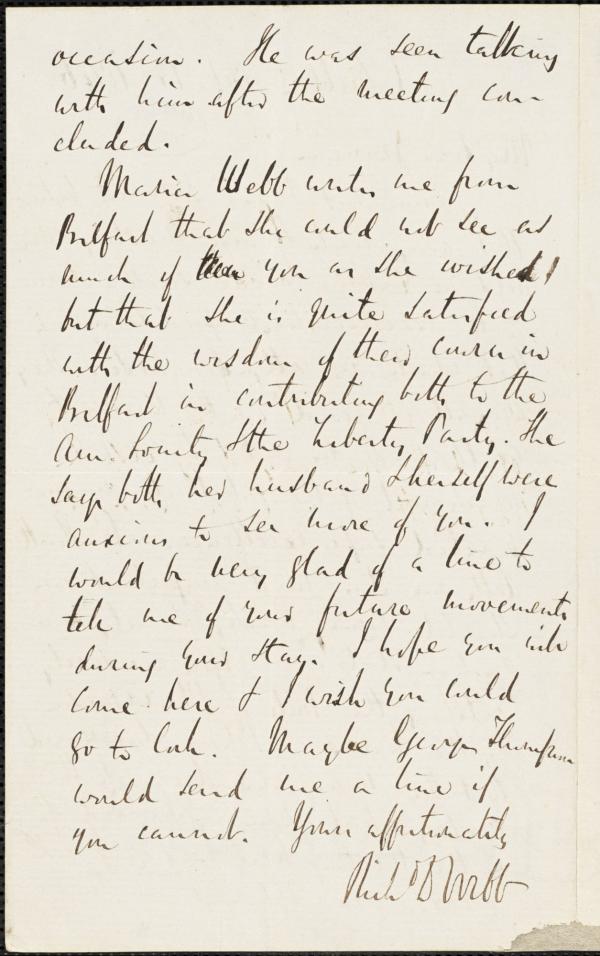 occasion. He was seen talking
with him after the meeting con-
cluded.
Maria Webb writes me from
Belfast that she could not see as
much of you as she wished
but that she is quite satisfied
with the wisdom of their course in
Belfast in contributing both to the
Am. Society & the Liberty Party. She
says both her husband & herself were
anxious to see more of you. I
would be very glad of a line to
tell me of your future movements
during your stay. I hope you will
come here & I wish you could
go to Cork. Maybe George Thompson
would send me a line if
you cannot. Yours affectionately
Richd D Webb